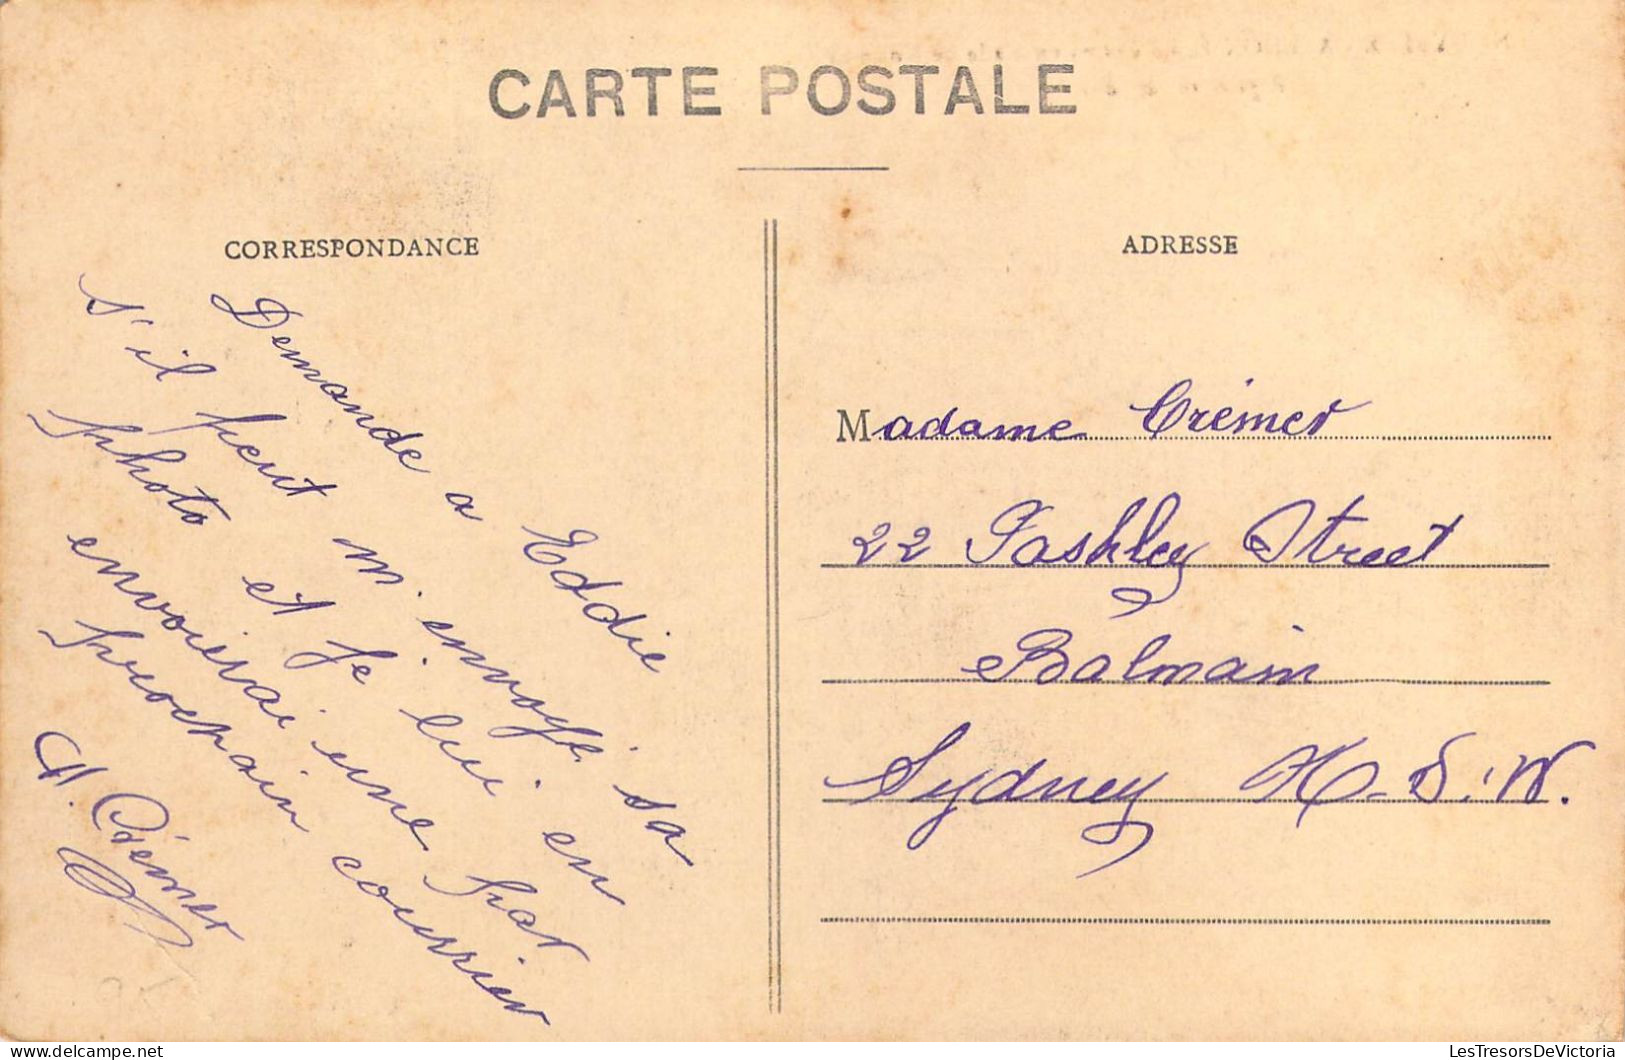 CARTE POSTALE
CORRESPONDANCE
Demande a Eddie
s'il peut m'envoyé sa
photo et je lui en
envoierai une par
prochain courrier
A. Crémer
ADRESSE
Madame Crémer
22 Pashley Street
Balmain
Sydney N.S.W.
LesTresorsDeVictoria